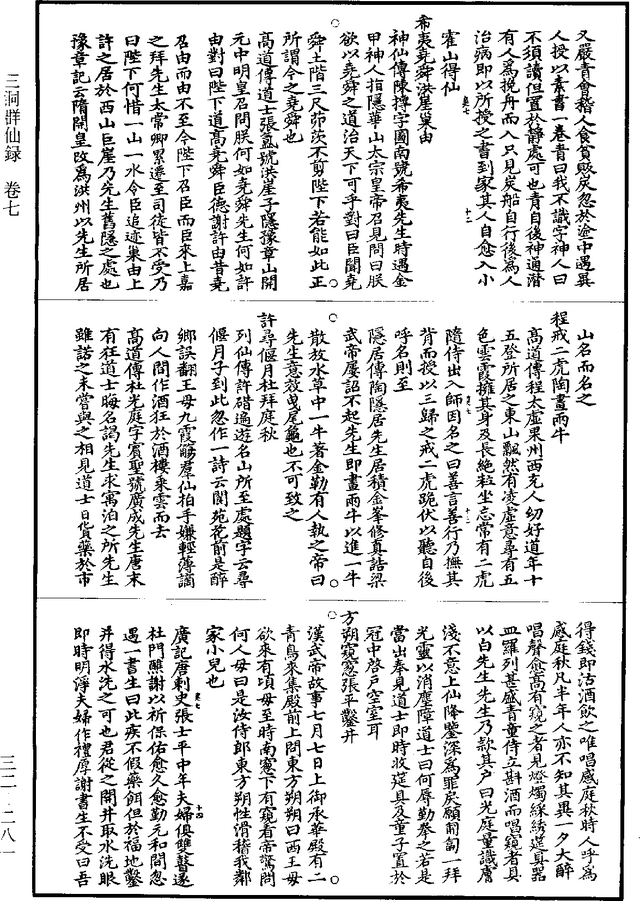 又嚴青會稽人食貧販炭忽於途中遇異
人授以素書一卷青曰我不識字神人曰
不須讀但置於靜處可也青自後神通潛
有人爲挽舟而入只見炭船自行後爲人
治病即以所授之書到家其人自愈入小
霍山得仙
希夷堯舜洪崖巢由
神仙傳陳摶字圖南號希夷先生時遇金
甲神人指隱華山太宗皇帝召見問曰朕
欲以堯舜之道治天下可乎對曰臣聞堯
舜土階三尺茆茨不剪陛下若能如此正
所謂今之堯舜也
高道傳道士張氲號洪崖子隱豫章山開
元中明皇召問朕何如堯舜先生何如許
由對曰陛下道高堯舜臣德謝許由昔堯
召由而由不至今陛下召臣而臣來上嘉
之拜先生太常卿累遷至司徒皆不受乃
曰陛下何惜一山一水令臣追迹巢由上
許之居於西山巨崖乃先生舊隱之處也
豫章記云隋開皇改爲洪州以先生所居
山名而名之
程戒二虎陶畫兩牛
高道傳程太虛果州西充人幼好道年十
五登所居之東山飄然有凌虛意尋有五
色雲霞擁其身及長絶粒坐忘常有二虎
隨侍出入師因名之曰善言善行乃撫其
背而授以三歸之戒二虎跪伏以聽自後
呼名則至
隱居傳陶隱居先生居積金峯修真誥梁
武帝屢詔不起先生即畫兩牛以進一牛
散放水草中一牛著金勒有人執之帝曰
先生意效曳尾龜也不可致之
許尋偃月杜拜庭秋
列仙傳許碏遍遊名山所至處題字云尋
偃月子到此忽作一詩云閬苑花前是醉
鄉誤翻王母九霞觴群仙拍手嫌輕薄謫
向人間作酒狂於酒樓乘雲而去
高道傳杜光庭字賓聖號廣成先生唐末
有狂道士晦名謁先生求寓泊之所先生
雖諾之未嘗與之相見道士日貨藥於市
得錢即沽酒飲之唯唱感庭秋時人呼爲
感庭秋凡半年人亦不知其異一夕大醉
唱聲愈高有窺之者見燈燭綵綉筵具器
皿羅列甚盛青童侍立斟酒而唱窺者具
以白先生先生乃欵其戶曰光庭童識膚
淺不意上仙降鑒深爲罪戾願匍匐一拜
光靈以消塵障道士曰何辱勤拳之若是
當出奉見道士即時收筵具及童子置於
冠中啓戶空室耳
方朔窺窻張平鑿井
漢武帝故事七月七日上御承華殿有二
青鳥來集殿前上問東方朔朔曰西王母
欲來有頃母至時南窻下有窺看帝驚問
何人母曰是汝侍郎東方朔性滑稽我鄰
家小兒也
廣記唐刺史張士平中年夫婦俱雙瞽遂
杜門醮謝以祈保佑愈久愈勤元和間忽
遇一書生曰此疾不假藥餌但於福地鑿
井得水洗之可也君從之開井取水洗眼
即時明淨夫婦作禮厚謝書生不受曰吾
三洞群仙録　卷七
三二-二八一